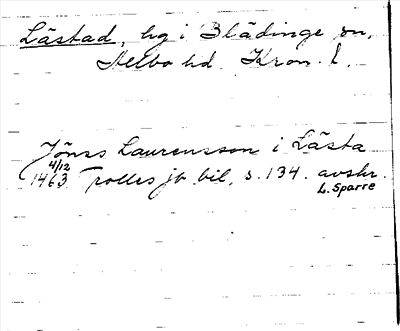 Lästad, hg i Blädinge sn,
Allbo hd. Kron. l.
Jönss Laurensson i Lästa
4/12
1463 Trolles jb bil, s. 134. avskr.
L. Sparre